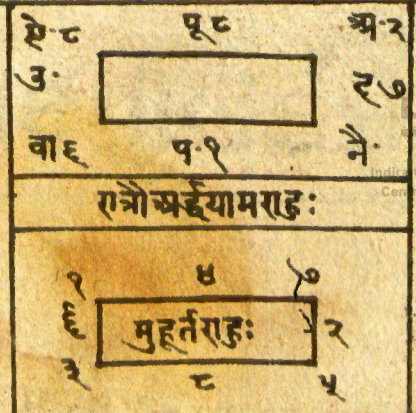 ऐ·८ पू ८ अ·२
उ· द ७
वा ६ प·१ नै·
रात्रौअर्द्धयामराहुः
१ ४ ७
६ मुहूर्तराहुः २
३ ८ ५